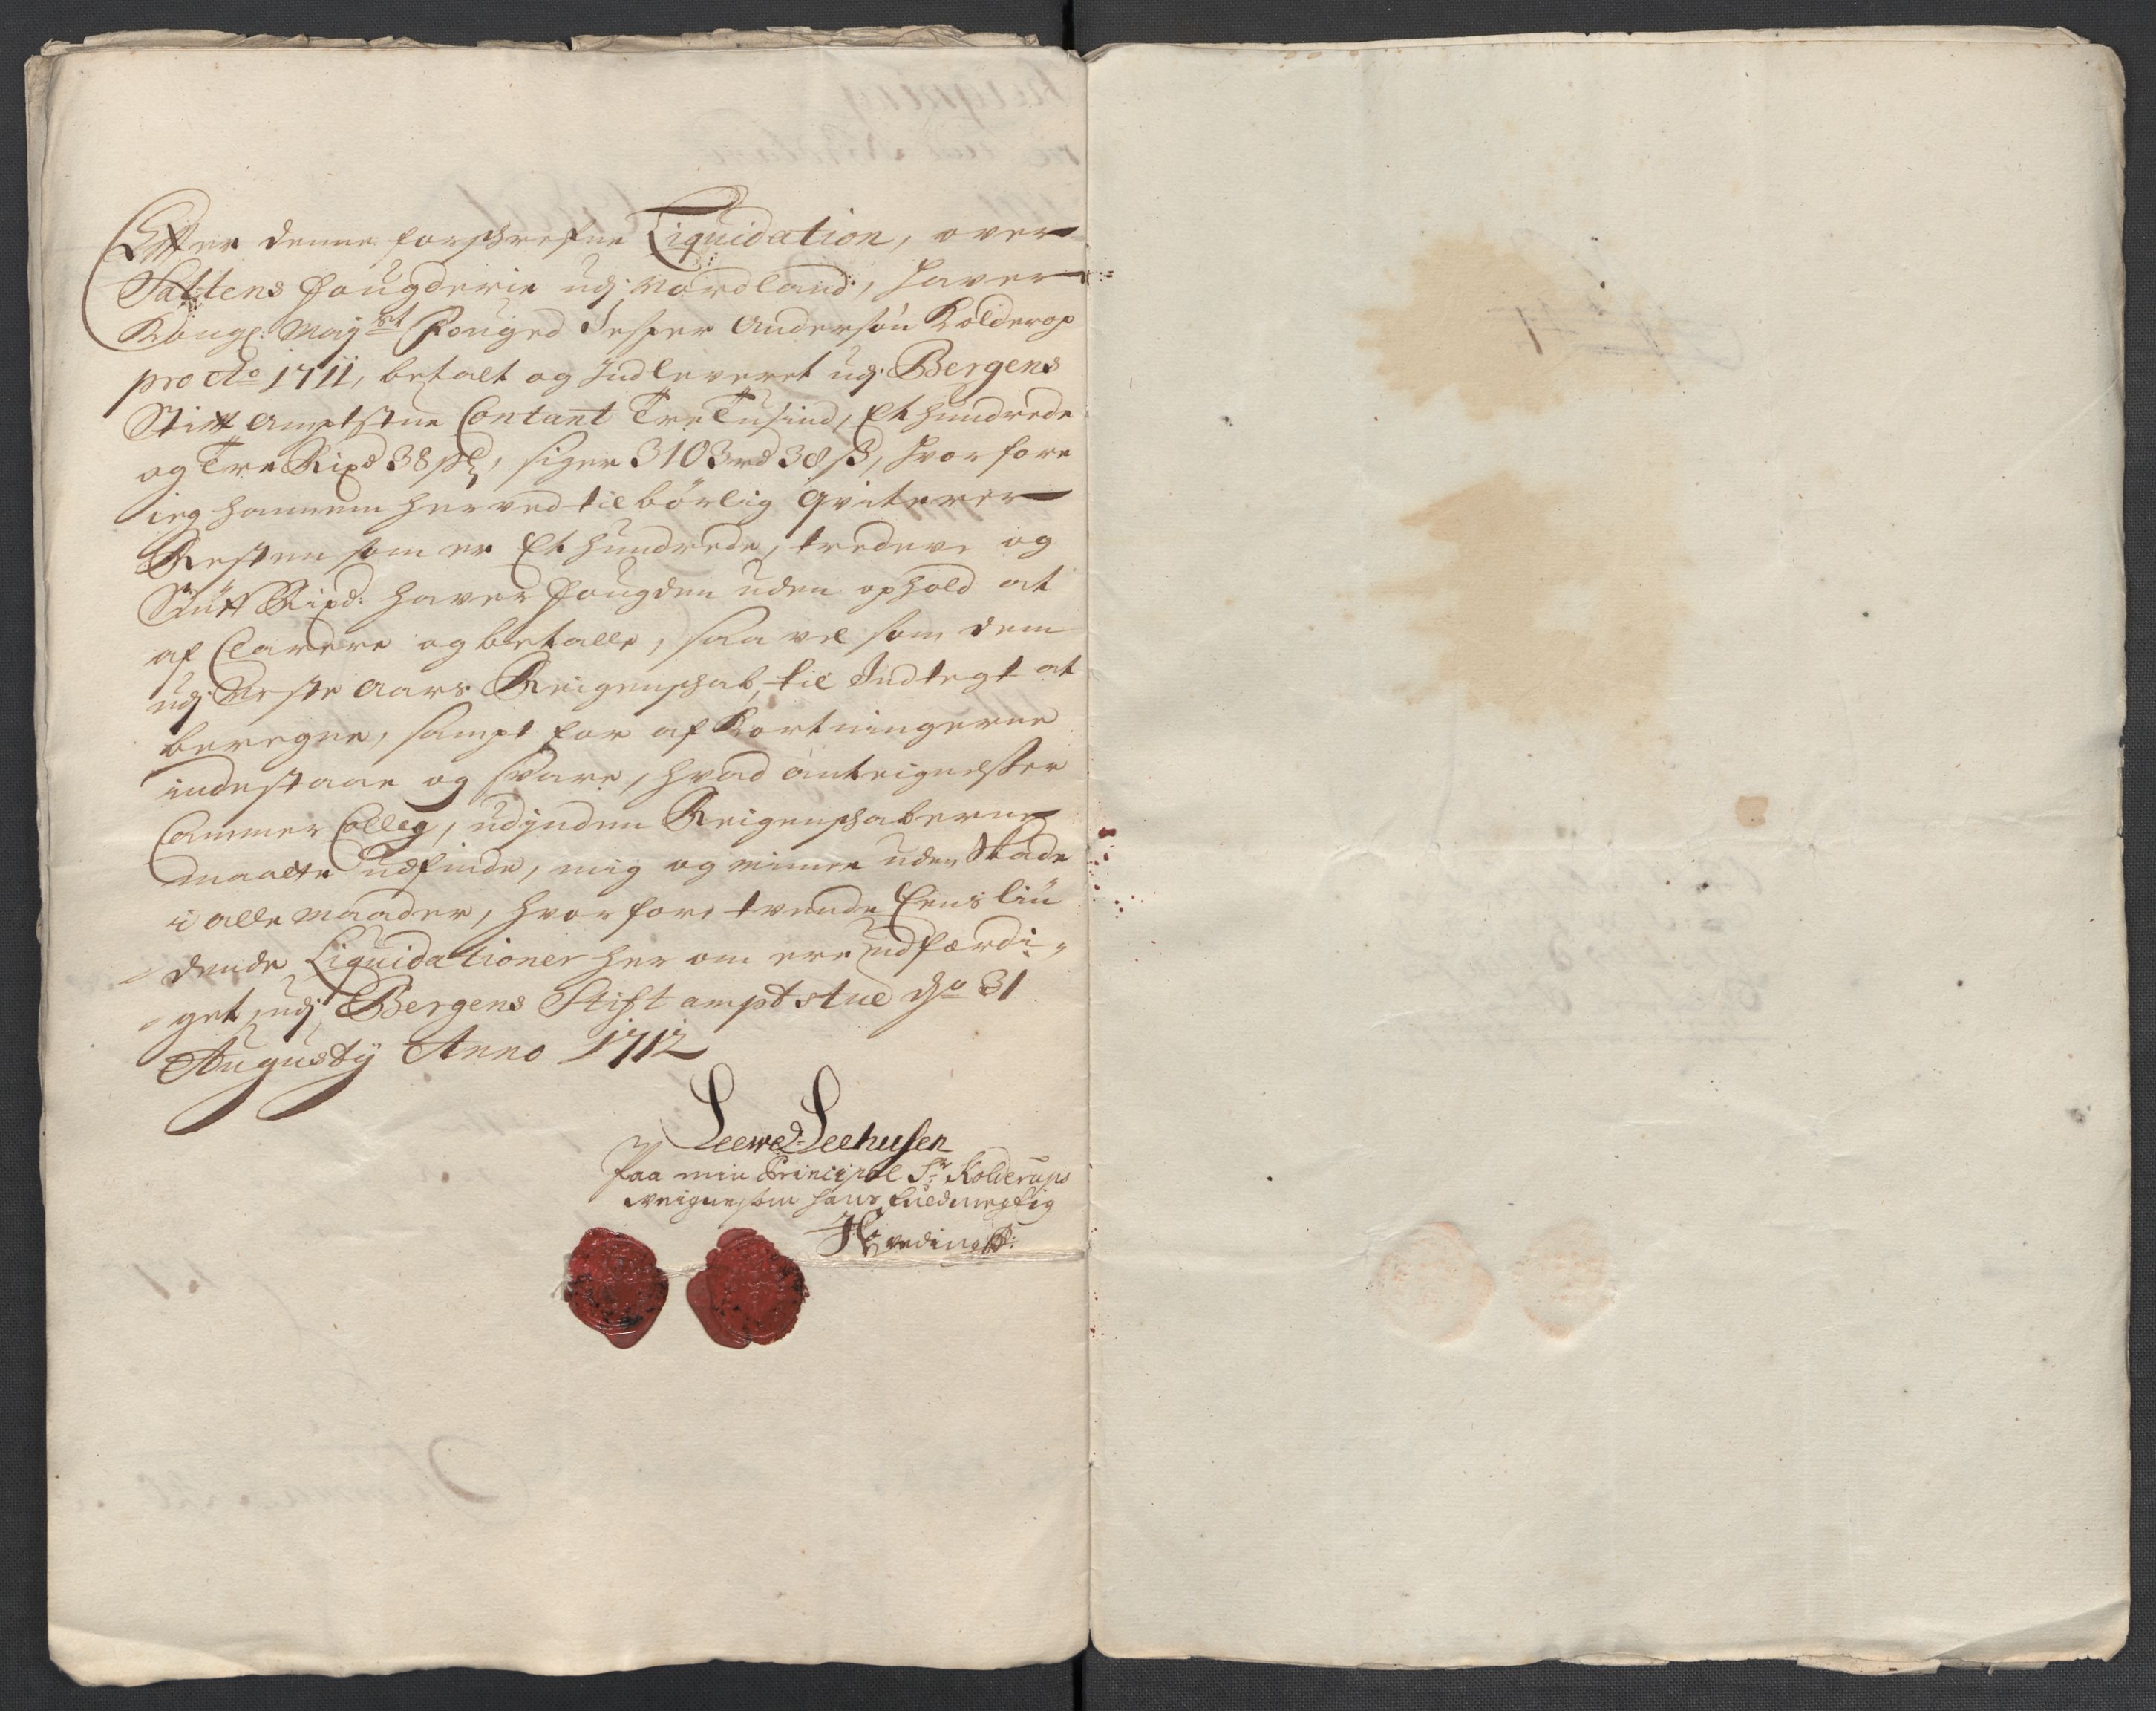 Effter denne forschrefne Liquidation, over
Saltens Fougderie udj Nordland, haver
Kongl: Mayst Fouged Jesper Andersøn Kolderop
pro Ao 1711, betalt og Indleveret udj Bergens
Stifft Amptstue Contant Tre Tusind, Et hundrede
og Tre Rixd 38 sk, siger 3103 rd 38 ß, hvor fore
ieg hannem herved tilbørlig qviterer
Resten som er Et hundrede, tredeve og
Rixd: haver Fougden uden ophold at
af Clarere og betalle, saa vel som dem
udj Neste Aars Reigenschab, til Indtegt at
beregne, sampt for af Kortningerne
indestaae og svare, hvad anteignelsser
Cammer Colleg, udj Reigenschaberne
maatte udfinde, mig og minne uden Skade
i alle maader, hvor fore tvende Eensliu
dende Liquidationer her om ere udfærdi„
„get, udj Bergens Stift amptstue d 31
Augustij Anno 1712
Leewe Leehusen
Paa min Principal Sr Kolderups
veigne, som hans fuldmegtig